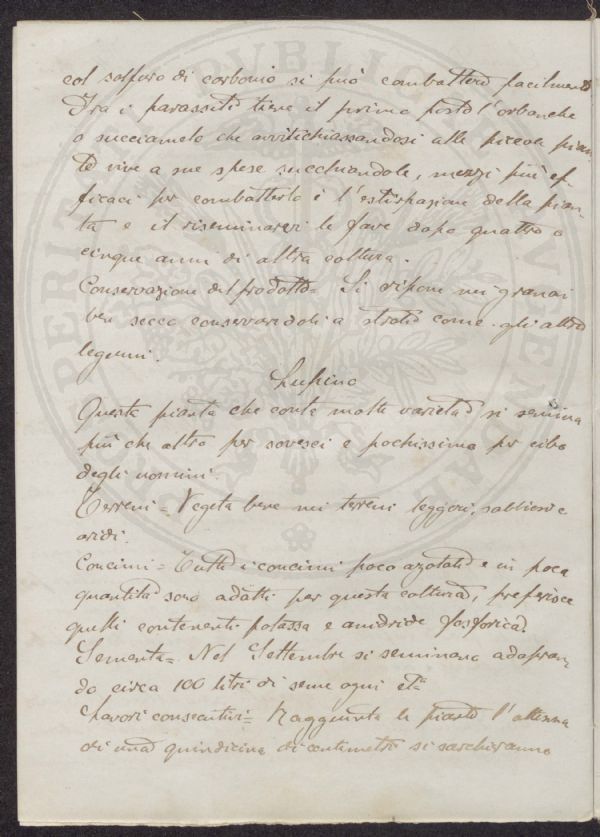 col solfuro di carbonio si può combattere facilmente
Fra i parassiti tiene il primo posto l'orbanche
o succiamelo che avvitichiassandosi alle piccole pian-
te vive a sue spese succhiandole, mezzi più ef-
ficaci per combatterlo è l'estirpazione della pian-
ta e il riseminarvi le fave dopo quattro o
cinque anni di altra coltura.
Conservazione del prodotto = Si ripone nei granai
ben secco conservandoli a strati come gli altri
legumi.
Lupino
Questa pianta che conta molte varietà si semina
più che altro per sovesci e pochissimo per cibo
degli uomini.
Terreni = Vegeta bene nei terreni leggeri, sabbiosi e
aridi.
Concimi = Tutti i concimi poco azotati e in poca
quantità sono adatti per questa coltura, preferisce
quelli contenenti potassa e anidride fosforica.
Sementa = Nel Settembre si seminano adopran-
do circa 100 litri di seme ogni et.a
Lavori consecutivi = Raggiunta le piante l'altezza
di una quindicina di centimetri si sarchieranno